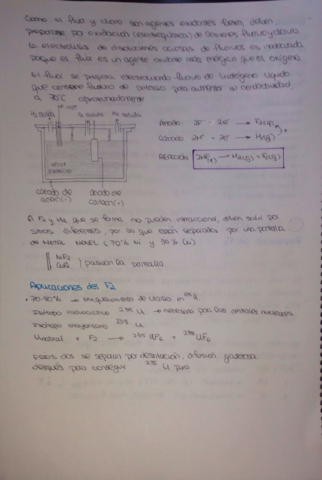 Como el flúor y cloro son agentes oxidantes fuertes, deben
prepararse por oxidación (electroquímica) de aniones fluoruro y cloruro
la electrolisis de disoluciones acuosas de fluoruros es inadecuada
porque el flúor es un agente oxidante más enérgico que el oxígeno.
El flúor se prepara electrolizando fluoruro de hidrógeno líquido
que contiene fluoruro de potasio para aumentar su conductividad
a 70°C aproximadamente
H2 salida
F2 salida
H2 salida
Ánodo 2F⁻ - 2e⁻ → F2(g)
Cátodo 2H⁺ + 2e⁻ → H2(g)
Reacción 2HF(l) → H2(g) + F2(g)
cátodo de
ánodo de
El F2 y H2 que se forma no pueden interaccionar, deben salir por
sitios diferentes, por lo que están separados por una pantalla
de Metal MONEL (70% Ni y 30% Cu)
NiF2
CuF2
pasivan la pantalla
Aplicaciones del F2
70-80% → enriquecimiento de Uranio
Isótopo radioactivo ²³⁵U → necesario para las centrales nucleares
Isótopo mayoritario ²³⁸U
Unatural + F2 → ²³⁵UF6 ²³⁸UF6
Estos dos se separan por destilación, difusión gaseosa
después para conseguir ²³⁵U puro